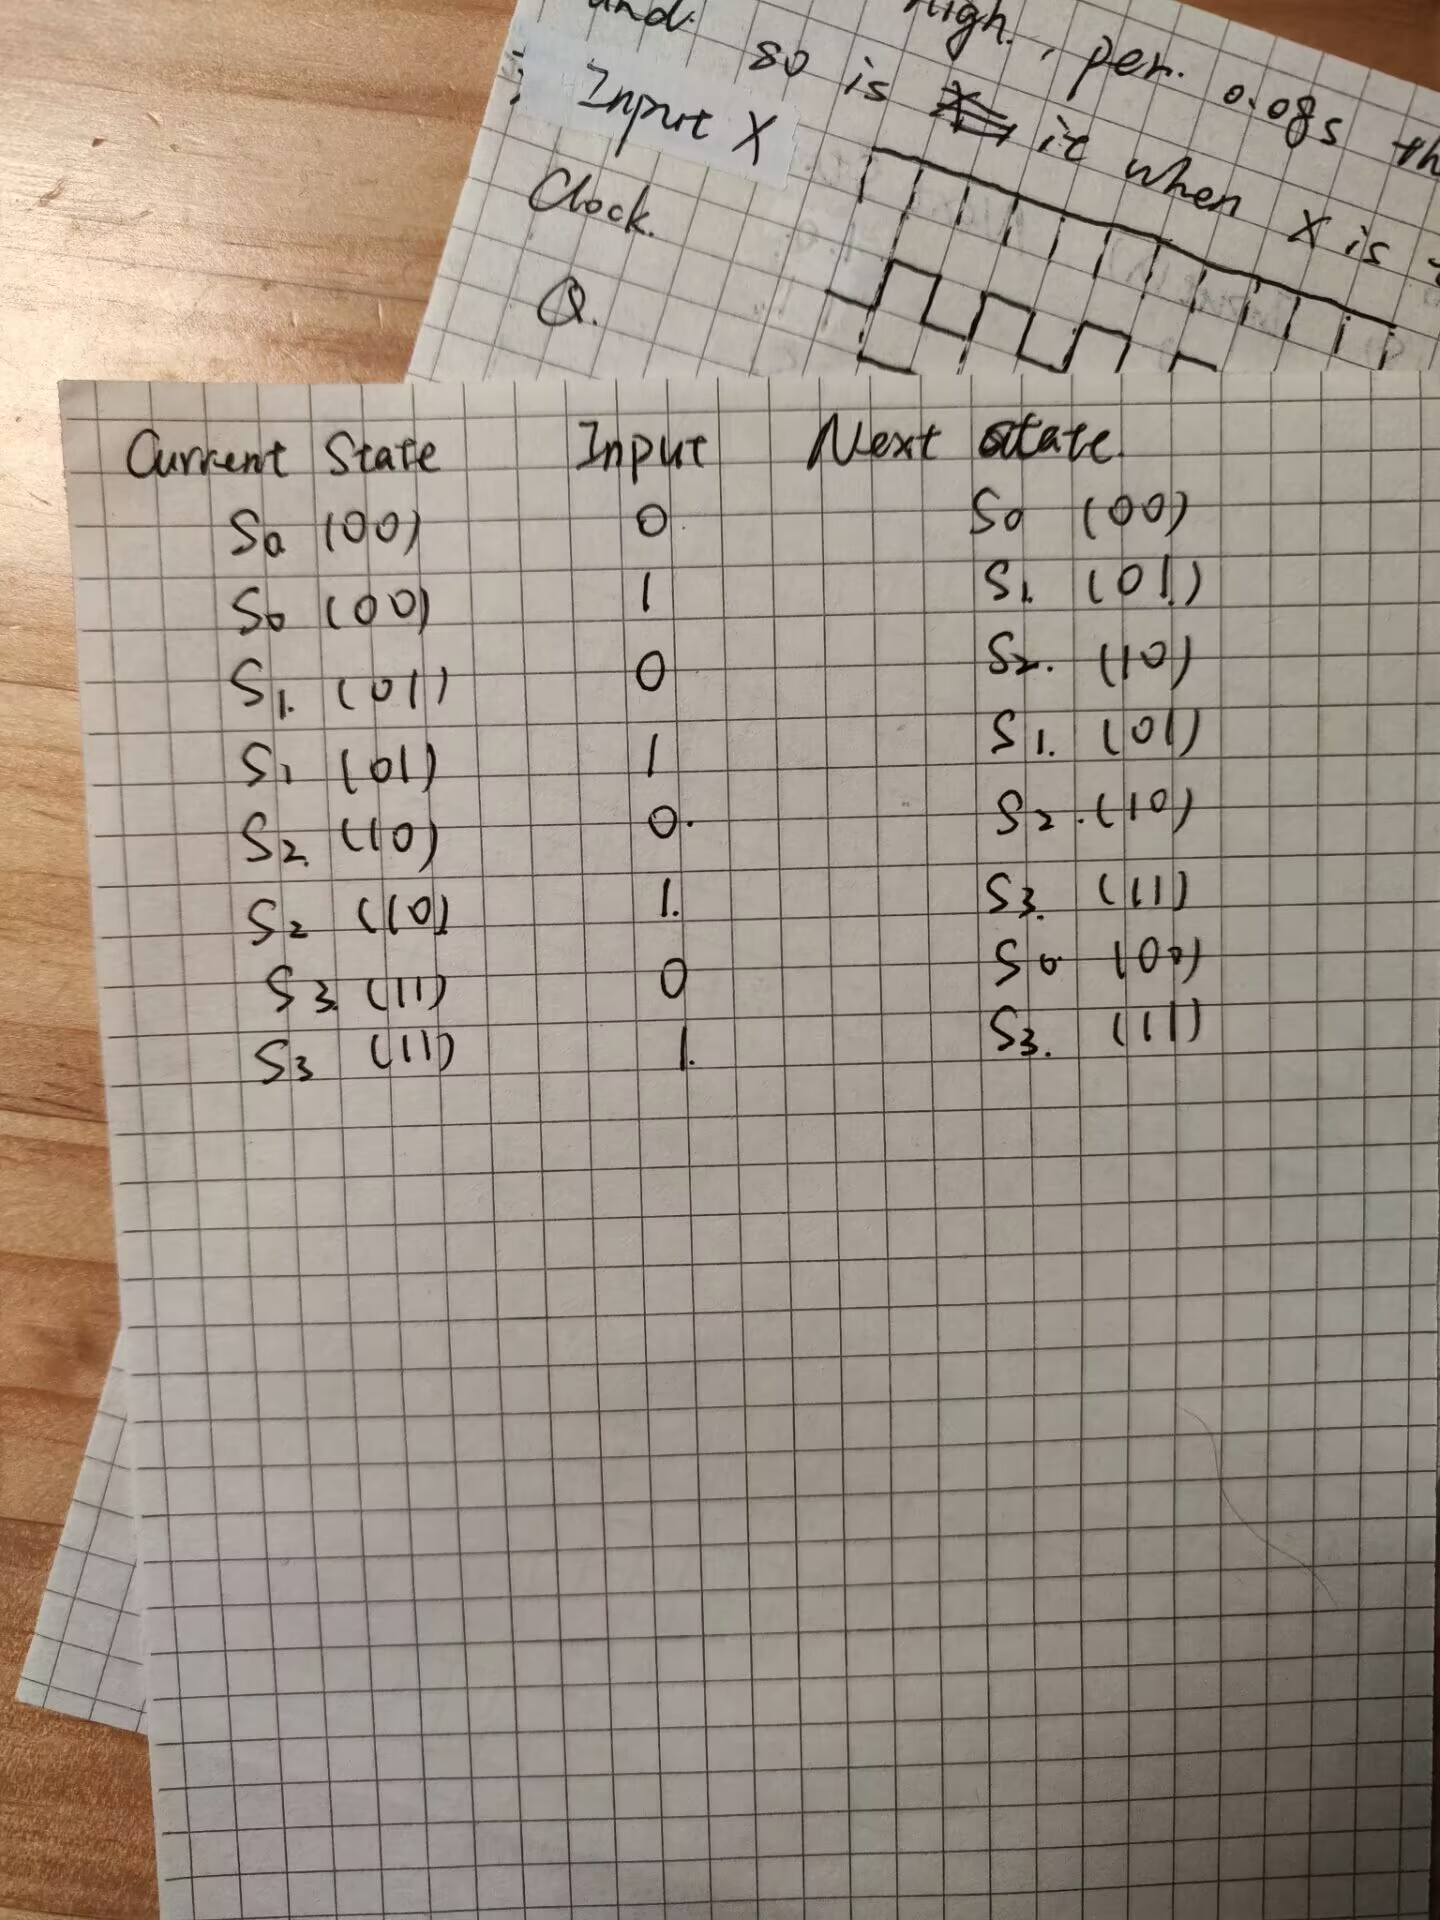 and. High., per. 0.08s th
so is it when X is
Input X
Clock.
Q.
Current State Input Next state.
S0 (00) 0 S0 (00)
S0 (00) 1 S1. (01)
S1. (01) 0 S2. (10)
S1 (01) 1 S1. (01)
S2. (10) 0. S2. (10)
S2 (10) 1. S3. (11)
S3. (11) 0 S0 (00)
S3 (11) 1. S3. (11)